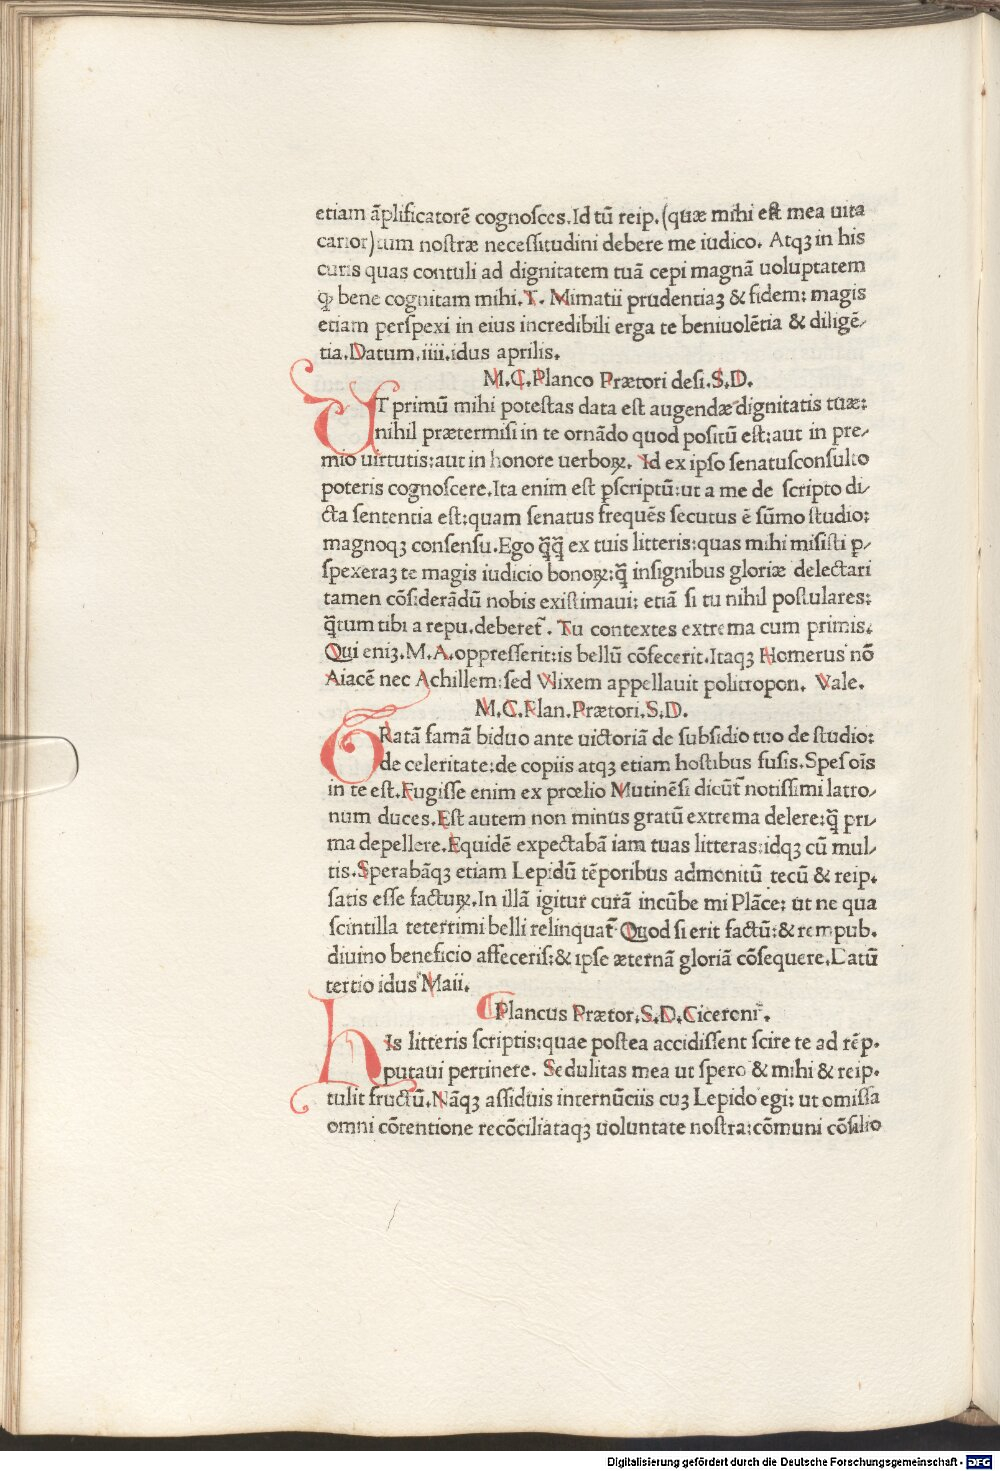 etiam āplificatorē cognoſces.Id tū reip.(quæ mihi eſt mea uita
carior)tum noſtræ neceſſitudini debere me iudico. Atqꝫ in his
curis quas contuli ad dignitatem tuā cepi magnā uoluptatem
ꝙ bene cognitam mihi.T. Mimatii prudentiaꝫ & fidem: magis
etiam perſpexi in eius incredibili erga te beniuolētia & diligē/
tia.Datum.iiii.idus aprilis.
M.C.Planco Prætori deſi.S.D.
UT primū mihi poteſtas data eſt augendæ dignitatis tuæ:
nihil prætermiſi in te ornādo quod poſitū eſt:aut in pre/
mio uirtutis:aut in honore uerboꝝ. Id ex ipſo ſenatusconſulto
poteris cognoſcere.Ita enim eſt ꝑſcriptū:ut a me de ſcripto di/
cta ſententia eſt:quam ſenatus frequēs ſecutus ē ſūmo ſtudio:
magnoqꝫ conſenſu.Ego q̄q̄ ex tuis litteris:quas mihi miſiſti ꝑ/
ſpexeraꝫ te magis iudicio bonoꝝ:q̄ inſignibus gloriæ delectari
tamen cōſiderādū nobis exiſtimaui: etiā ſi tu nihil poſtulares:
q̄tum tibi a repu.deberet̄. Tu contextes extrema cum primis.
Qui eniꝫ.M.A.oppreſſerit:is bellū cōfecerit.Itaqꝫ Homerus nō
Aiacē nec Achillem:ſed Vlixem appellauit politropon. Vale.
M.C.Plan.Prætori.S.D.
GRatā famā biduo ante uictoriā de ſubſidio tuo de ſtudio:
de celeritate:de copiis atqꝫ etiam hoſtibus fuſis.Spes oīs
in te eſt.Fugiſſe enim ex prœlio Mutinēſi dicūt̄ notiſſimi latro/
num duces.Eſt autem non minus gratū extrema delere:q̄ pri/
ma depellere.Equidē expectabā iam tuas litteras:idqꝫ cū mul/
tis.Sperabāqꝫ etiam Lepidū tēporibus admonitū tecū & reip.
ſatis eſſe factuꝝ.In illā igitur curā incūbe mi Plāce: ut ne qua
ſcintilla teterrimi belli relinquat̄ Quod ſi erit factū:& rempub.
diuino beneficio affeceris:& ipſe æternā gloriā cōſequere.Datū
tertio idus Maii.
Plancus Prætor.S.D.Ciceroni.
hIs litteris ſcriptis:quae poſtea accidiſſent ſcire te ad rēp.
putaui pertinere. Sedulitas mea ut ſpero & mihi & reip.
tulit fructū.Nāqꝫ aſſiduis internūciis cuꝫ Lepido egi: ut omiſſa
omni cōtentione recōciliataqꝫ uoluntate noſtra:cōmuni cōſilio
Digitalisierung gefördert durch die Deutsche Forschungsgemeinschaft - DFG